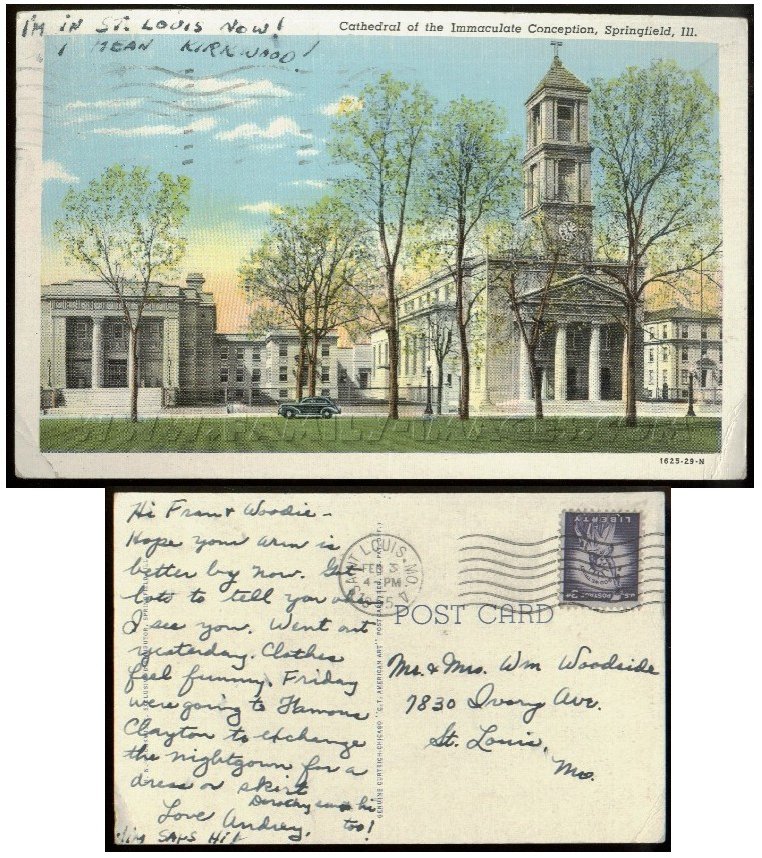 I'M IN ST. LOUIS NOW!
I MEAN KIRKWOOD!
Cathedral of the Immaculate Conception, Springfield, Ill.
WWW.FAMILY-IMAGES.COM
1625-29-N
Hi Fran & Woodie -
Hope your arm is
better by now. Got
lots to tell you when
I see you. Went out
yesterday. Clothes
feel funny. Friday
were going to Famous
Clayton to exchange
the nightgown for a
dress or skirt
Dorothy says hi
too!
Love Audrey.
Jim SAYS HI!
GENUINE CURTEICH-CHICAGO "C.T. AMERICAN ART" POST CARD
SAINT LOUIS, MO. 4
FEB 3
4 - PM
LIBERTY
3¢ POSTAGE 3¢
POST CARD
Mr. & Mrs. Wm Woodside
7830 Ivory Ave.
St. Louis,
Mo.